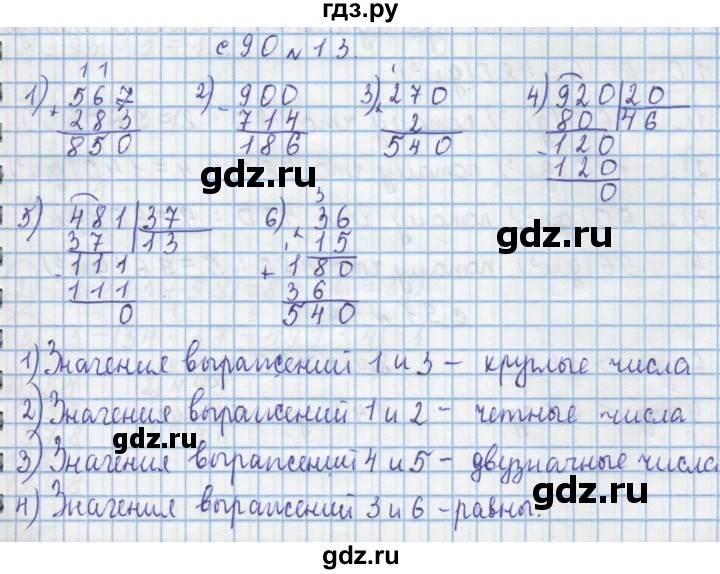 гдз.ру
с 90 № 13.
1) + 567 283 850
2) - 900 714 186
3) × 270 2 540
4) 920 | 20
80 | 46
- 120
120
0
5) 481 | 37
37 | 13
- 111
111
0
6) × 36
15
+ 180
36
540
gdz.ru gdz.ru
gdz.ru
1) Значения выражений 1 и 3 – круглые числа
2) Значения выражений 1 и 2 – четные числа
3) Значения выражений 4 и 5 – двузначные числа
4) Значения выражений 3 и 6 – равны.
gdz.ru gdz.ru
gdz.ru